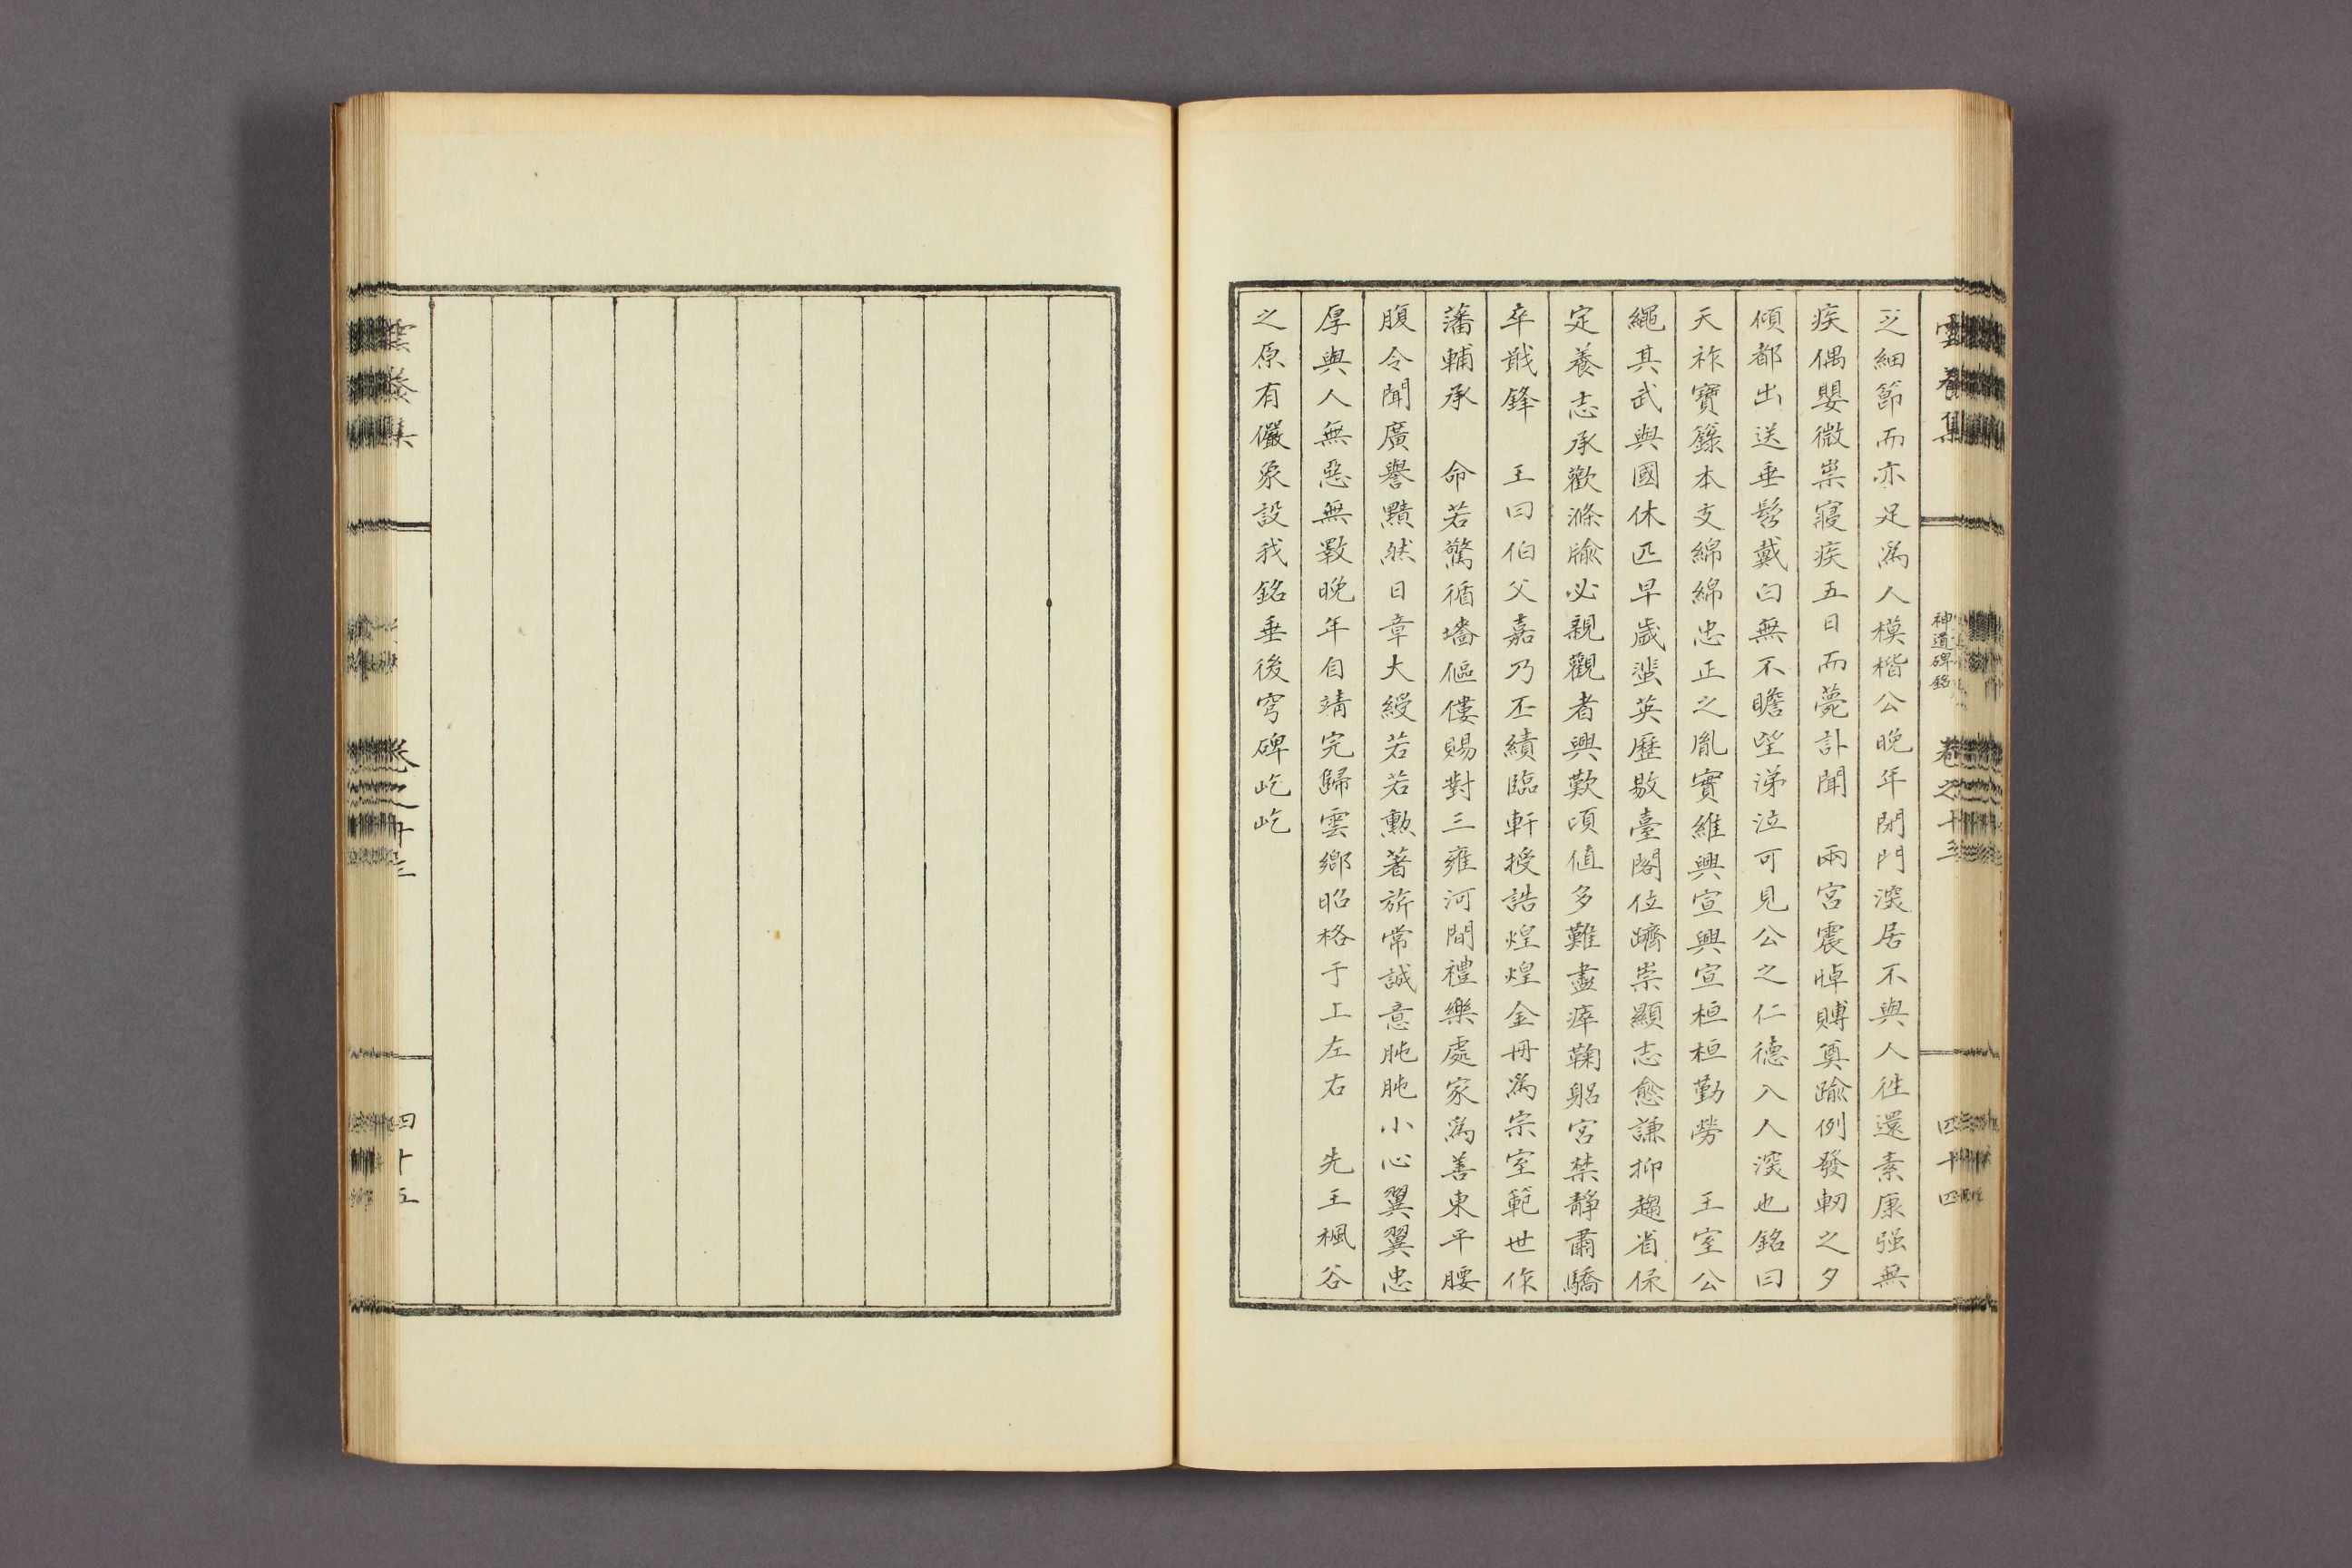 雲養集 神道碑銘 卷之十三 四十四
之細節而亦足爲人模楷公晚年閉門深居不與人徃還素康强無
疾偶嬰微祟寢疾五日而薨訃聞 兩宮震悼賻奠踰例發軔之夕
傾都出送垂髫戴白無不瞻望涕泣可見公之仁德入人深也銘曰
天祚寶籙本支綿綿忠正之胤實維興宣興宣桓桓勤勞 王室公
繩其武與國休匹早歲蜚英歷敭臺閣位躋崇顯志愈謙抑趨省保
定養志承歡滌牏必親觀者興歎頃値多難盡瘁鞠躬宮禁靜肅驕
卒戢鋒 王曰伯父嘉乃丕績臨軒授誥煌煌金冊爲宗室範世作
藩輔承 命若驚循墻傴僂賜對三雍河間禮樂處家爲善東平腰
腹令聞廣譽黯然日章大綬若若勳著旂常誠意肫肫小心翼翼忠
厚與人無惡無斁晚年自靖完歸雲鄉昭格于上左右 先王楓谷
之原有儼象設我銘垂後穹碑屹屹
雲養集 卷之十三 四十五